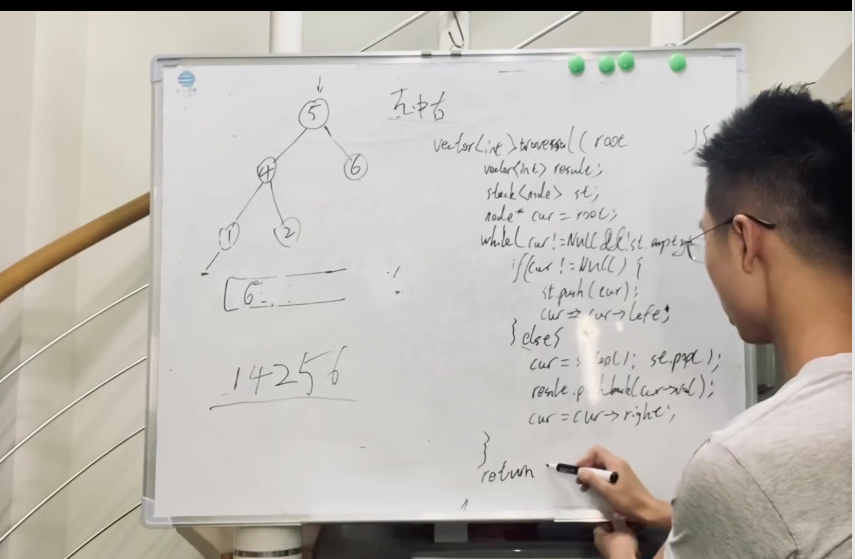 5
左中右
4
6
1
2
6
14256
vector<int> traversal( root ){
vector<int> result;
stack<node> st;
node* cur = root;
while( cur!=NULL&&!st.empty
if(cur!=NULL) {
st.push(cur);
cur = cur->left;
} else{
cur = st.top(); st.pop();
result.pushback(cur->val);
cur = cur->right;
}
return